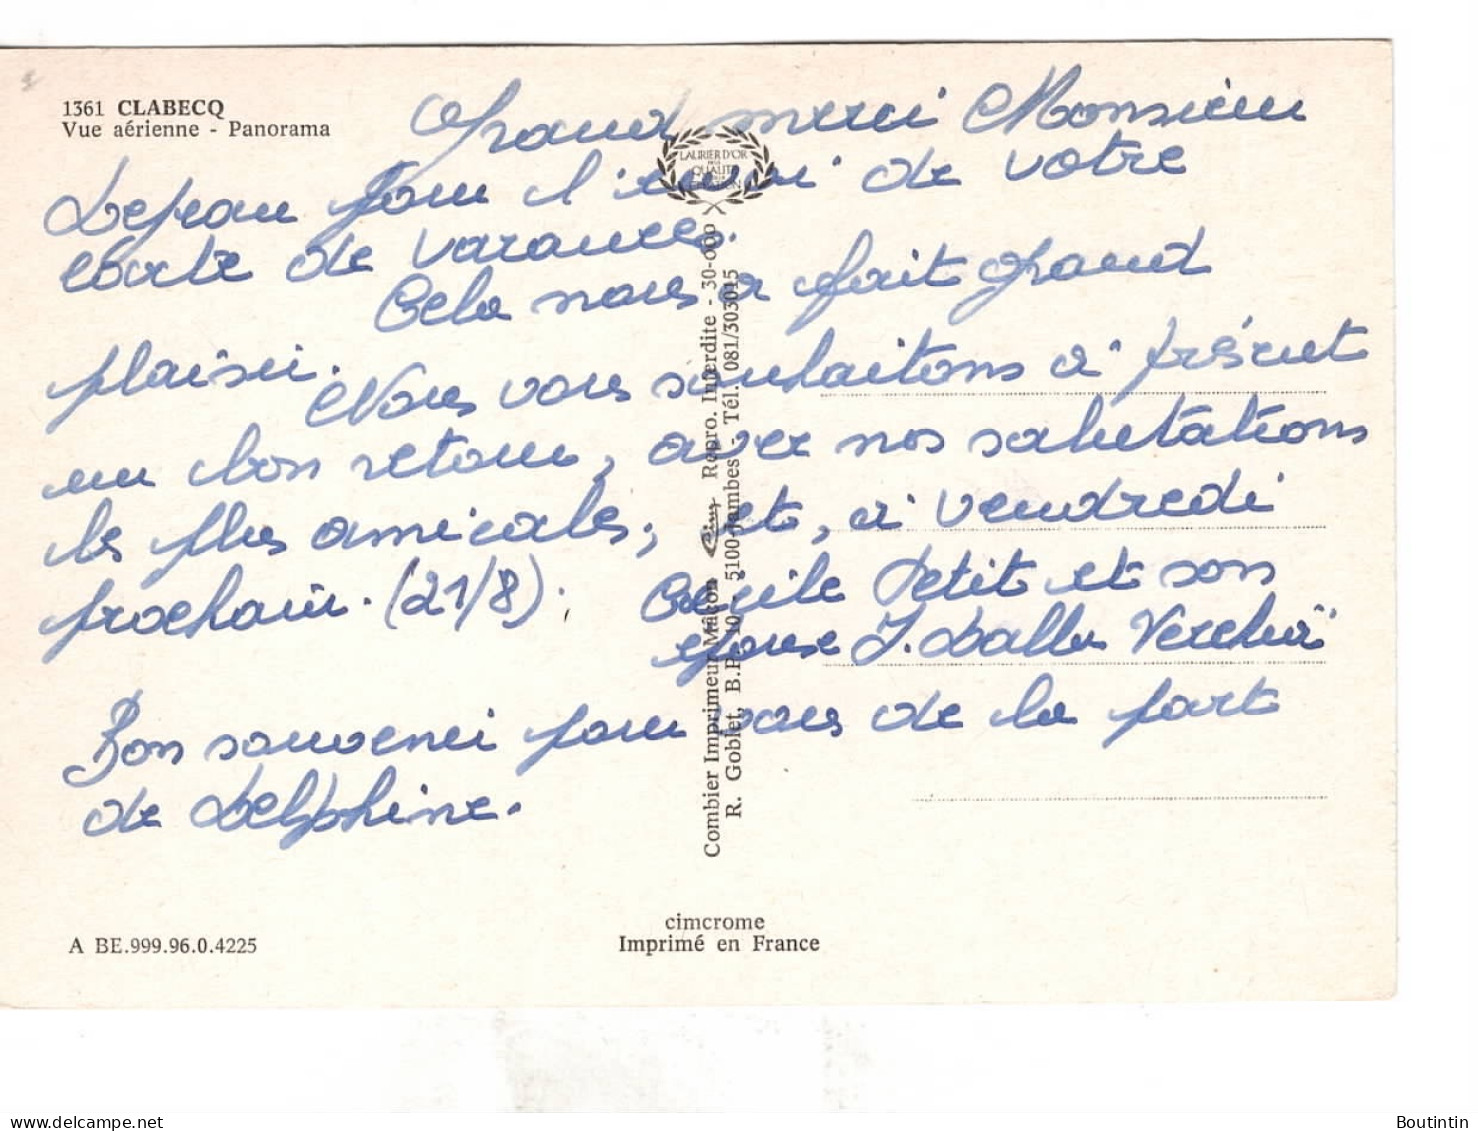 1361 CLABECQ
Vue aérienne - Panorama
Grand merci Monsieur
Lejeau pour l'envoi de votre
carte de vacances.
Cela nous a fait grand
plaisir.
Nous vous souhaitons à présent
un bon retour, avec nos salutations
les plus amicales; et, à vendredi
prochain. (21/8).
Cécile Petit et son
époux J. Dalla
Bon souvenir pour vous de la part
de Delphine.
LAURIER D'OR
QUALITÉ
Combier Imprimeur Mâcon Repro. Interdite - 30-000
R. Goblet, B.P. 10 - 5100 Jambes - Tél. 081/303015
cimcrome
Imprimé en France
A BE.999.96.0.4225
www.delcampe.net
Boutintin